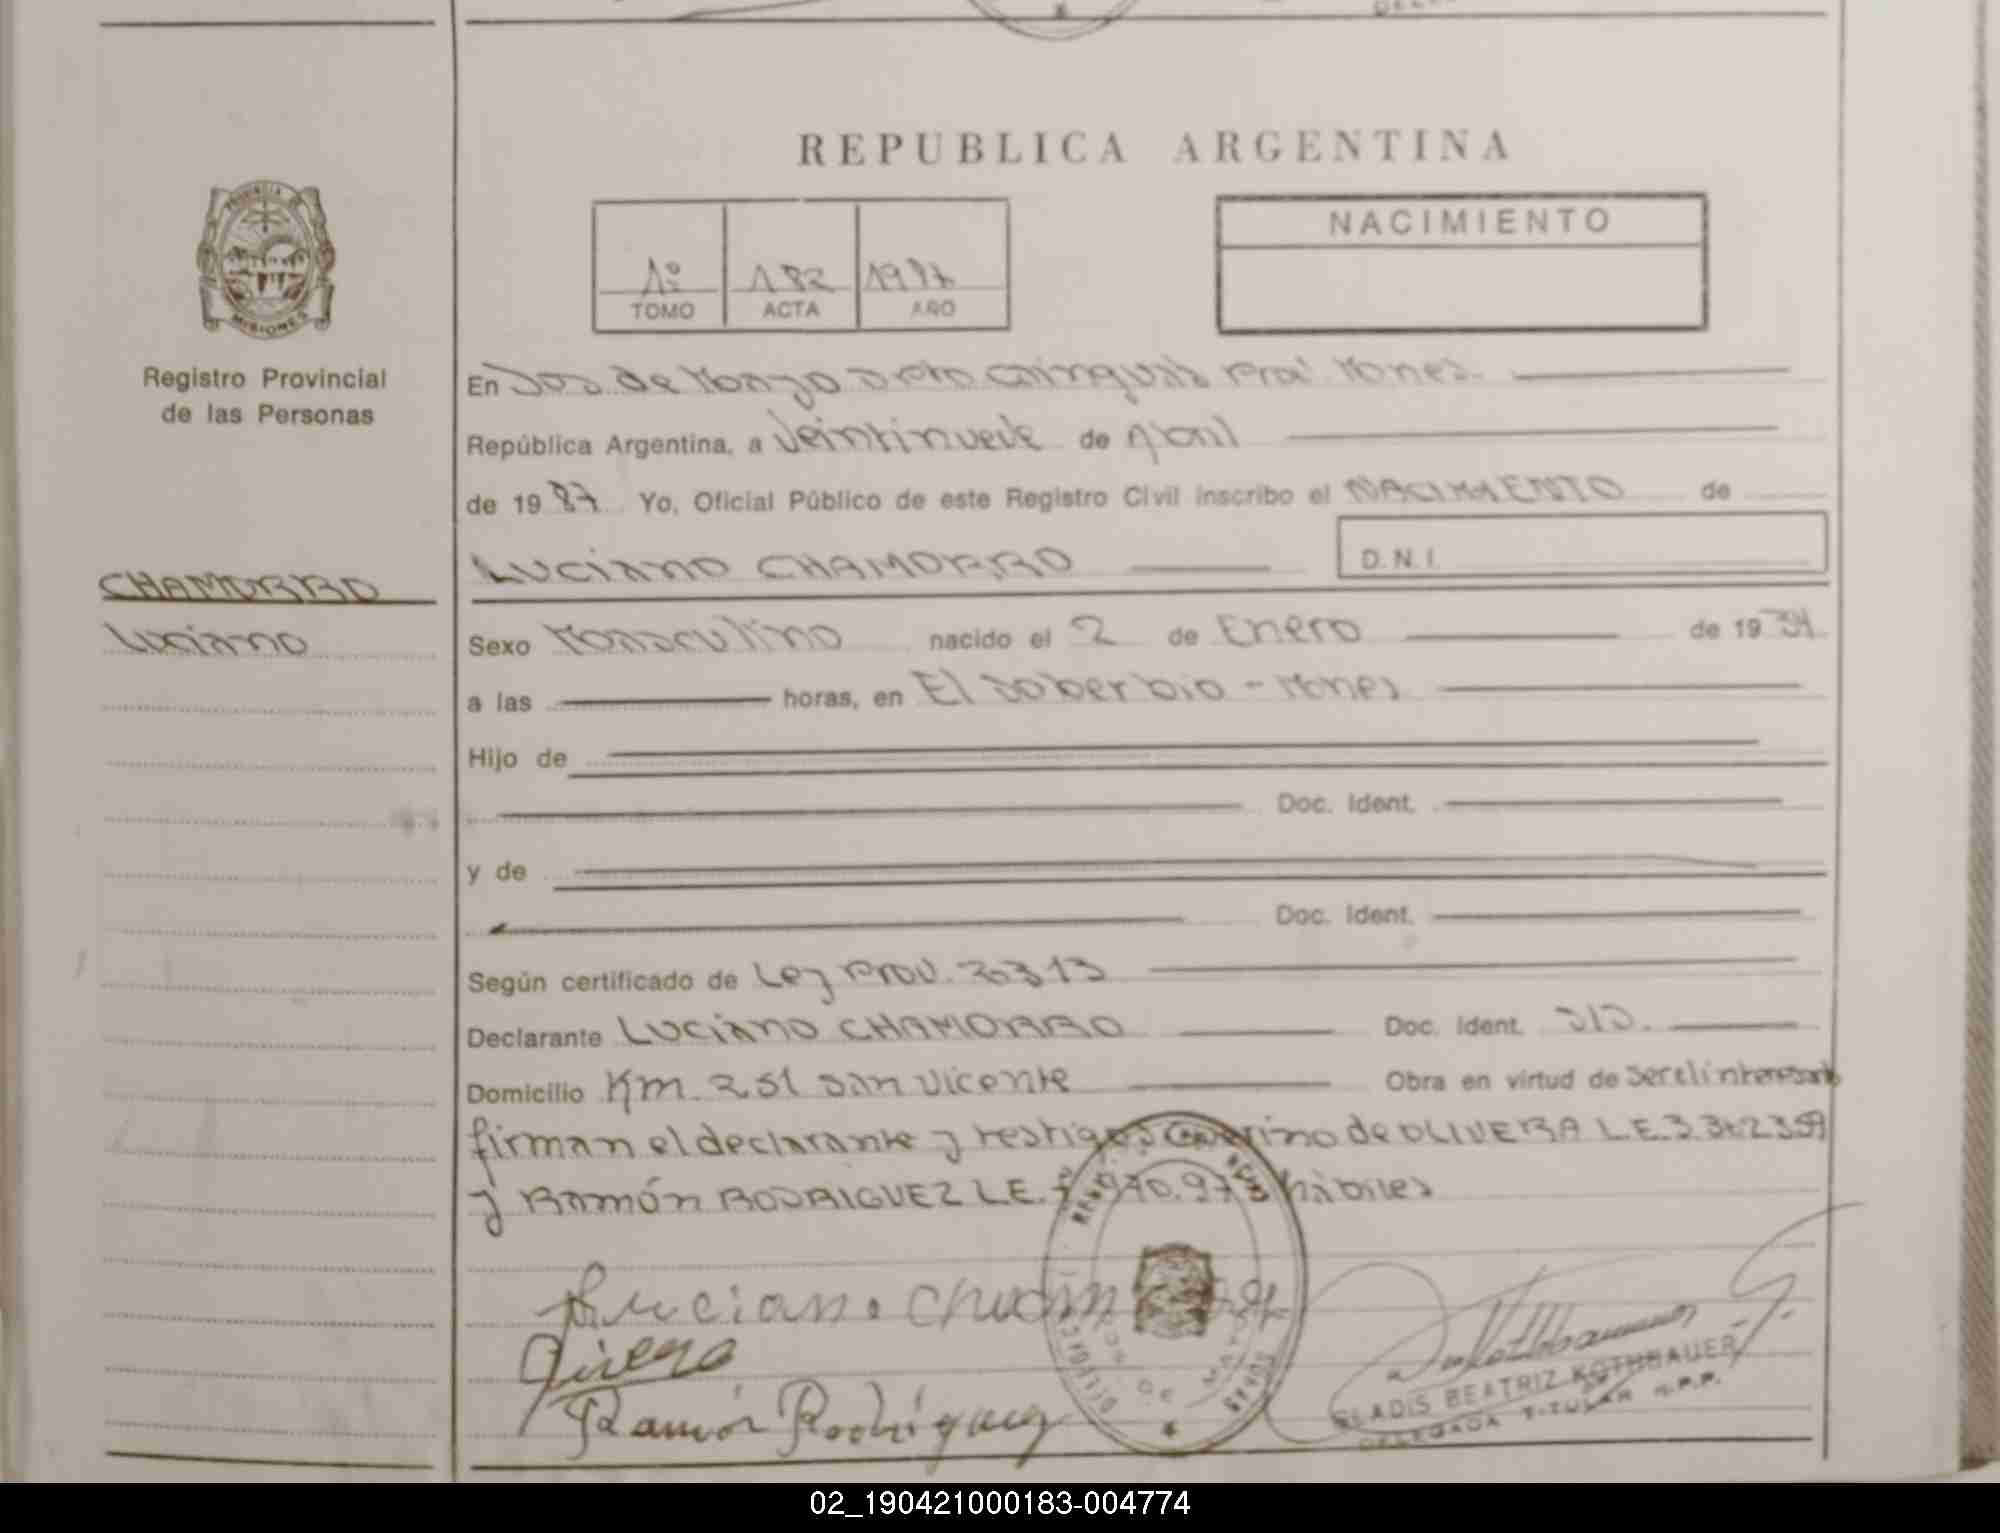 REPUBLICA ARGENTINA
PROVINCIA
MISIONES
Registro Provincial
de las Personas
1º 182 1987
TOMO ACTA AÑO
NACIMIENTO
En Dos de Mayo Dpto Cainguás Prov Mones.
República Argentina, a veintinueve de Abril
de 1987 Yo, Oficial Público de este Registro Civil inscribo el NACIMIENTO de
LUCIANO CHAMORRO D.N.I.
CHAMORRO
Luciano
Sexo Masculino nacido el 2 de Enero de 19
a las horas, en El Soberbio - Mones
Hijo de
Doc. Ident.
y de
Doc. Ident.
Según certificado de Ley Prov.
Declarante LUCIANO CHAMORRO Doc. Ident. SID.
Domicilio Km. 251 San Vicente Obra en virtud de ser el interesado
firman el declarante y testigos de OLIVERA L.E. 3.362.359
y RAMÓN RODRIGUEZ L.E. 970.973 hábiles
Luciano
Ramón Rodriguez
GLADIS BEATRIZ KOTHBAUER
DELEGADA TITULAR R.P.P.
02_190421000183-004774